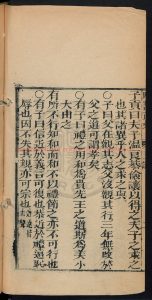 子貢曰夫子溫良恭儉讓以得之夫子之求之
也其諸異乎人之求之與
○子曰父在觀其志父沒觀其行三年無改於
父之道可謂孝矣
○有子曰禮之用和為貴先王之道斯為美小
大由之
有所不行知和而和不以禮節之亦不可行也
○有子曰信近於義言可復也恭近於禮遠恥
辱也因不失其親亦可宗也